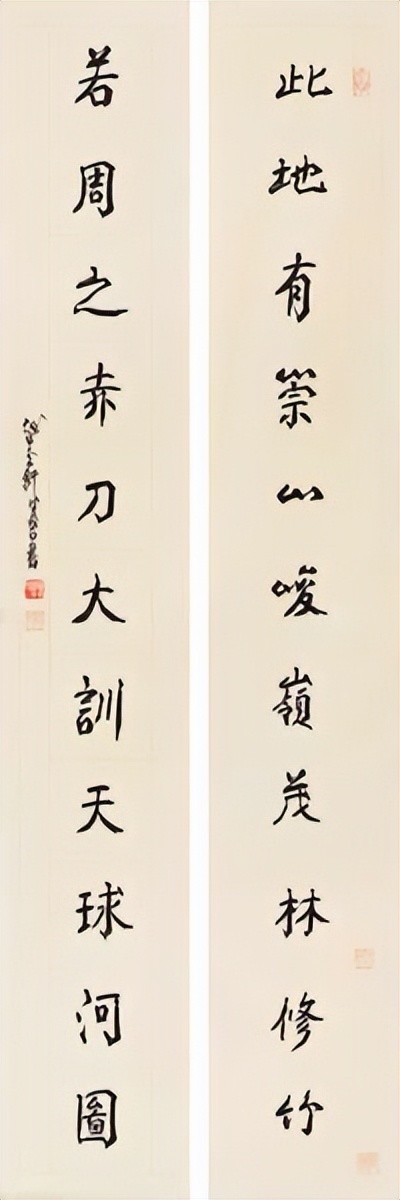 此地有崇山峻嶺茂林修竹
若周之赤刀大訓天球河圖